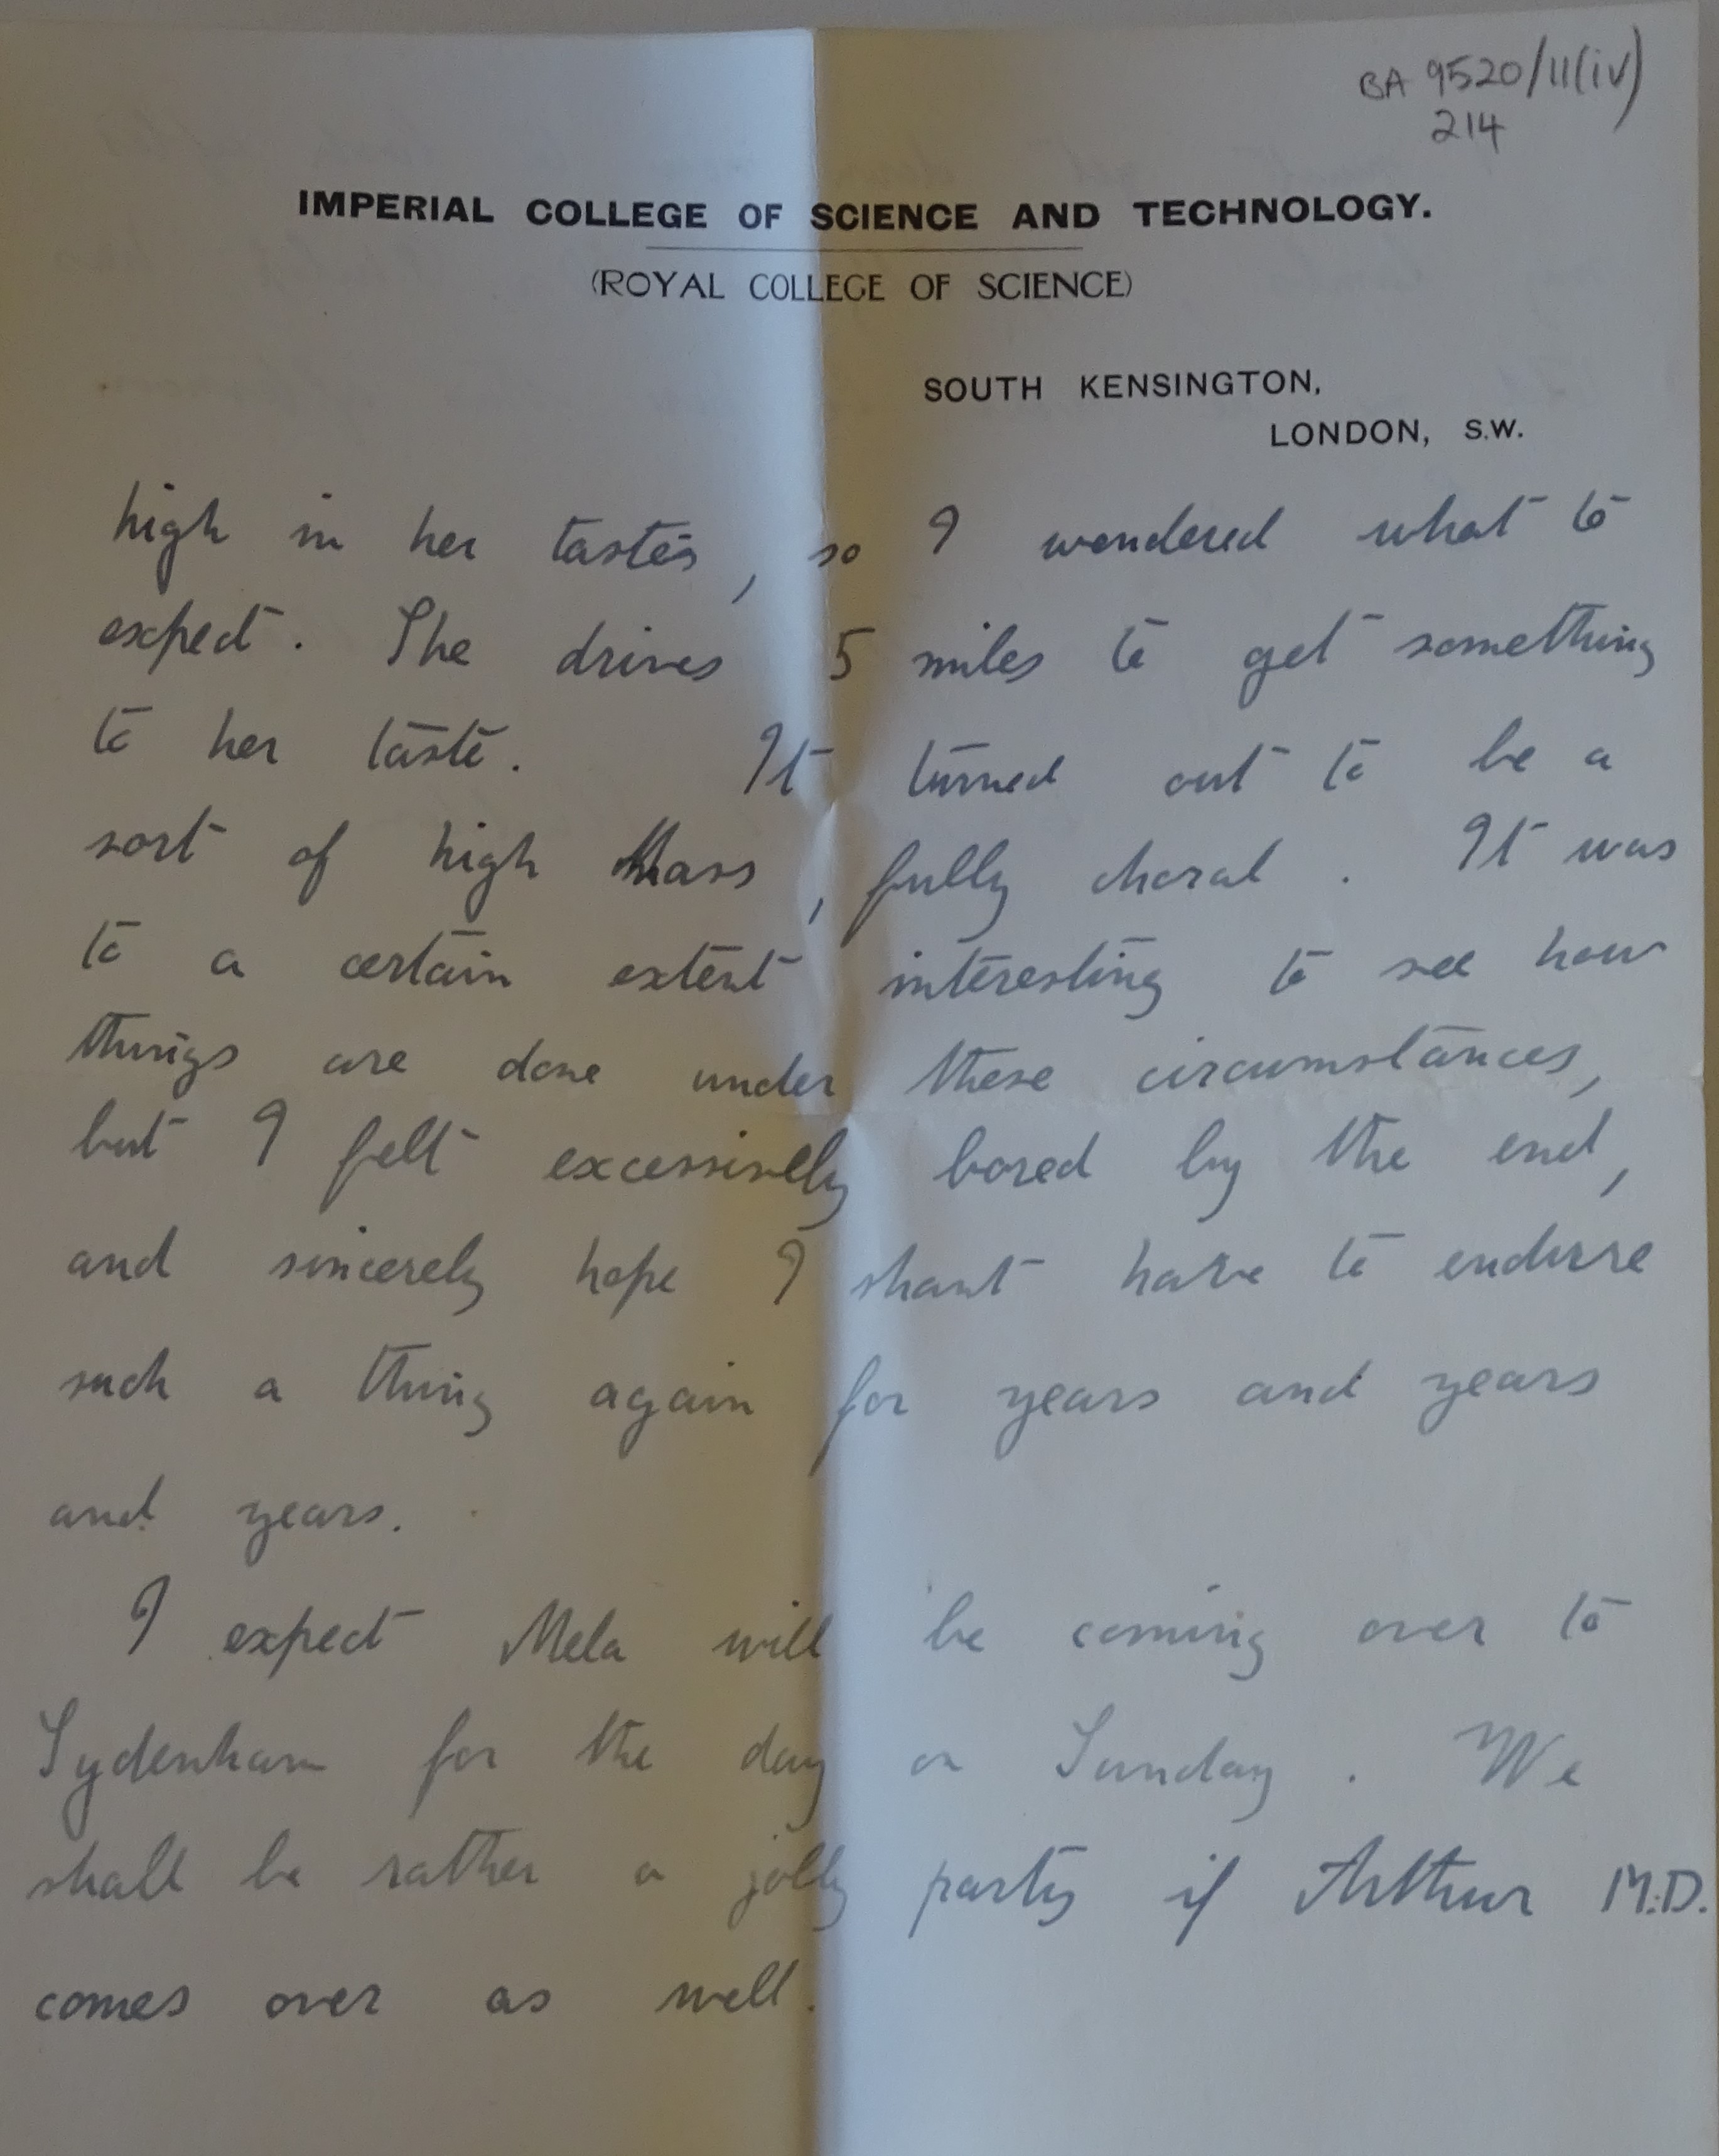 BA 9520/11(iv)
214
IMPERIAL COLLEGE OF SCIENCE AND TECHNOLOGY.
(ROYAL COLLEGE OF SCIENCE)
SOUTH KENSINGTON,
LONDON, S.W.
high in her tastes, so I wondered what to
expect. She drives 5 miles to get something
to her taste. It turned out to be a
sort of high Mass, fully choral. It was
to a certain extent interesting to see how
things are done under these circumstances,
but I felt excessively bored by the end,
and sincerely hope I shant have to endure
such a thing again for years and years
and years.
I expect Mela will be coming over to
Sydenham for the day on Sunday. We
shall be rather a jolly party if Arthur M.D.
comes over as well.